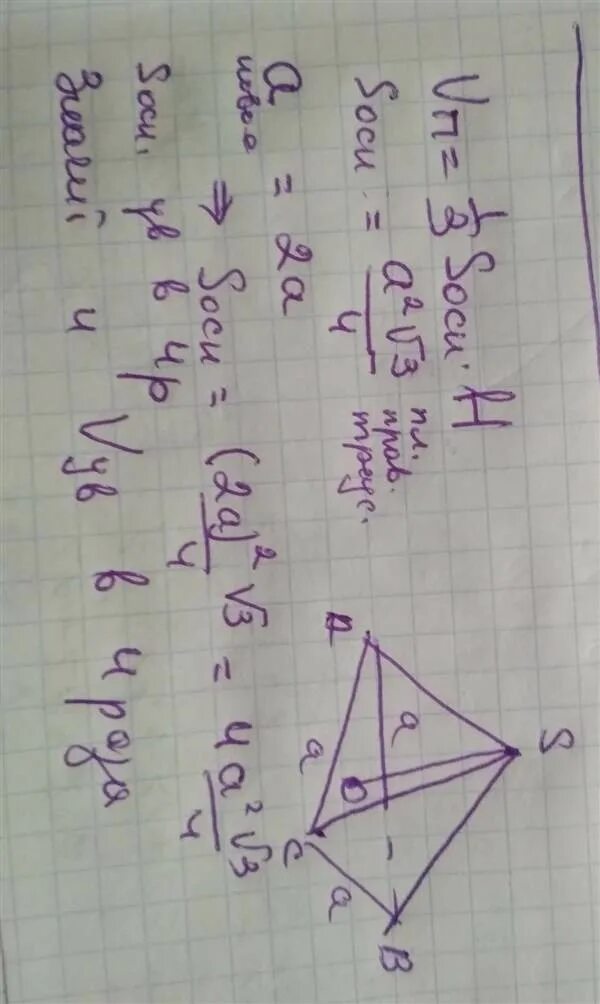 Vп = 1/3 Sосн · H
Sосн = a²√3/4 пл. прав. треуг.
a новое = 2a
⇒ Sосн = (2a)²√3/4 = 4a²√3/4
Sосн. ув в 4р
Значит и Vув в 4 раза
S
A
a
a
O
C
a
B